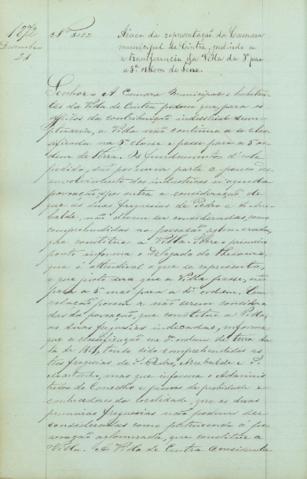 1872
Dezembro
21
Nº 3122
Ácerca da representação da Camara
municipal de Cintra, pedindo a
transferencia da Villa da 3ª para
a 5ª ordem de terra.
Senhor = A Camara Municipal e habitan-
tes da Villa de Cintra pedem que para os
effeitos da contribuição industrial
a Villa não continue a ser classi-
ficada na 3ª classe e passe para a 5ª or-
dem de terra. Os fundamentos d'este
pedido, são por uma parte o pouco de-
senvolvimento das industrias n'aquella
povoação, e por outra a consideração de
que as duas freguezias de Pedro e
não devem ser consideradas, como
comprehendidas na povoação agglomerada,
que constitue a Villa. Sobre o primeiro
ponto informa o Delegado do thesouro,
que é attendivel o que se representa,
e que poderá a Villa passar, não
para a 5ª mas para a 4ª ordem. Com
relação porem a não serem considera-
das da povoação, que constitue a Villa,
as duas freguezias indicadas, informa
que a classificação na 3ª ordem de terra da-
ta de tendo sido comprehendidas as
freguezias de S. Pedro,
mas que informa o Adminis-
trador do Concelho e pessoas de probidade e
conhecedoras da localidade, que as duas
primeiras freguezias não podem ser
consideradas como pertencendo á po-
voação agglomerada, que constitue a
Villa. A Villa de Cintra considerada